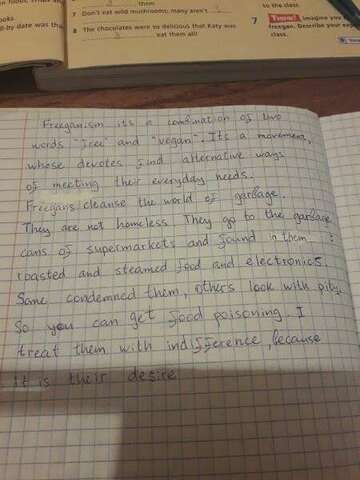 them
to the class.
ooks.
7 Don't eat wild mushrooms; many aren't
7 Time! Imagine you
l-by date was tha
8 The chocolates were so delicious that Katy was
freegan. Describe your exp
eat them all!
class.
Freeganism its a combination of two
words "free" and "vegan". Its a movement,
whose devotes find alternative ways
of meeting their everyday needs.
Freegans cleanse the world of garbage.
They are not homeless They go to the garbage
cans of supermarkets and found in them :
roasted and steamed food and electronics.
Some condemned them, others look with pity.
So you can get food poisoning. I
treat them with indifference, because
it is their desire